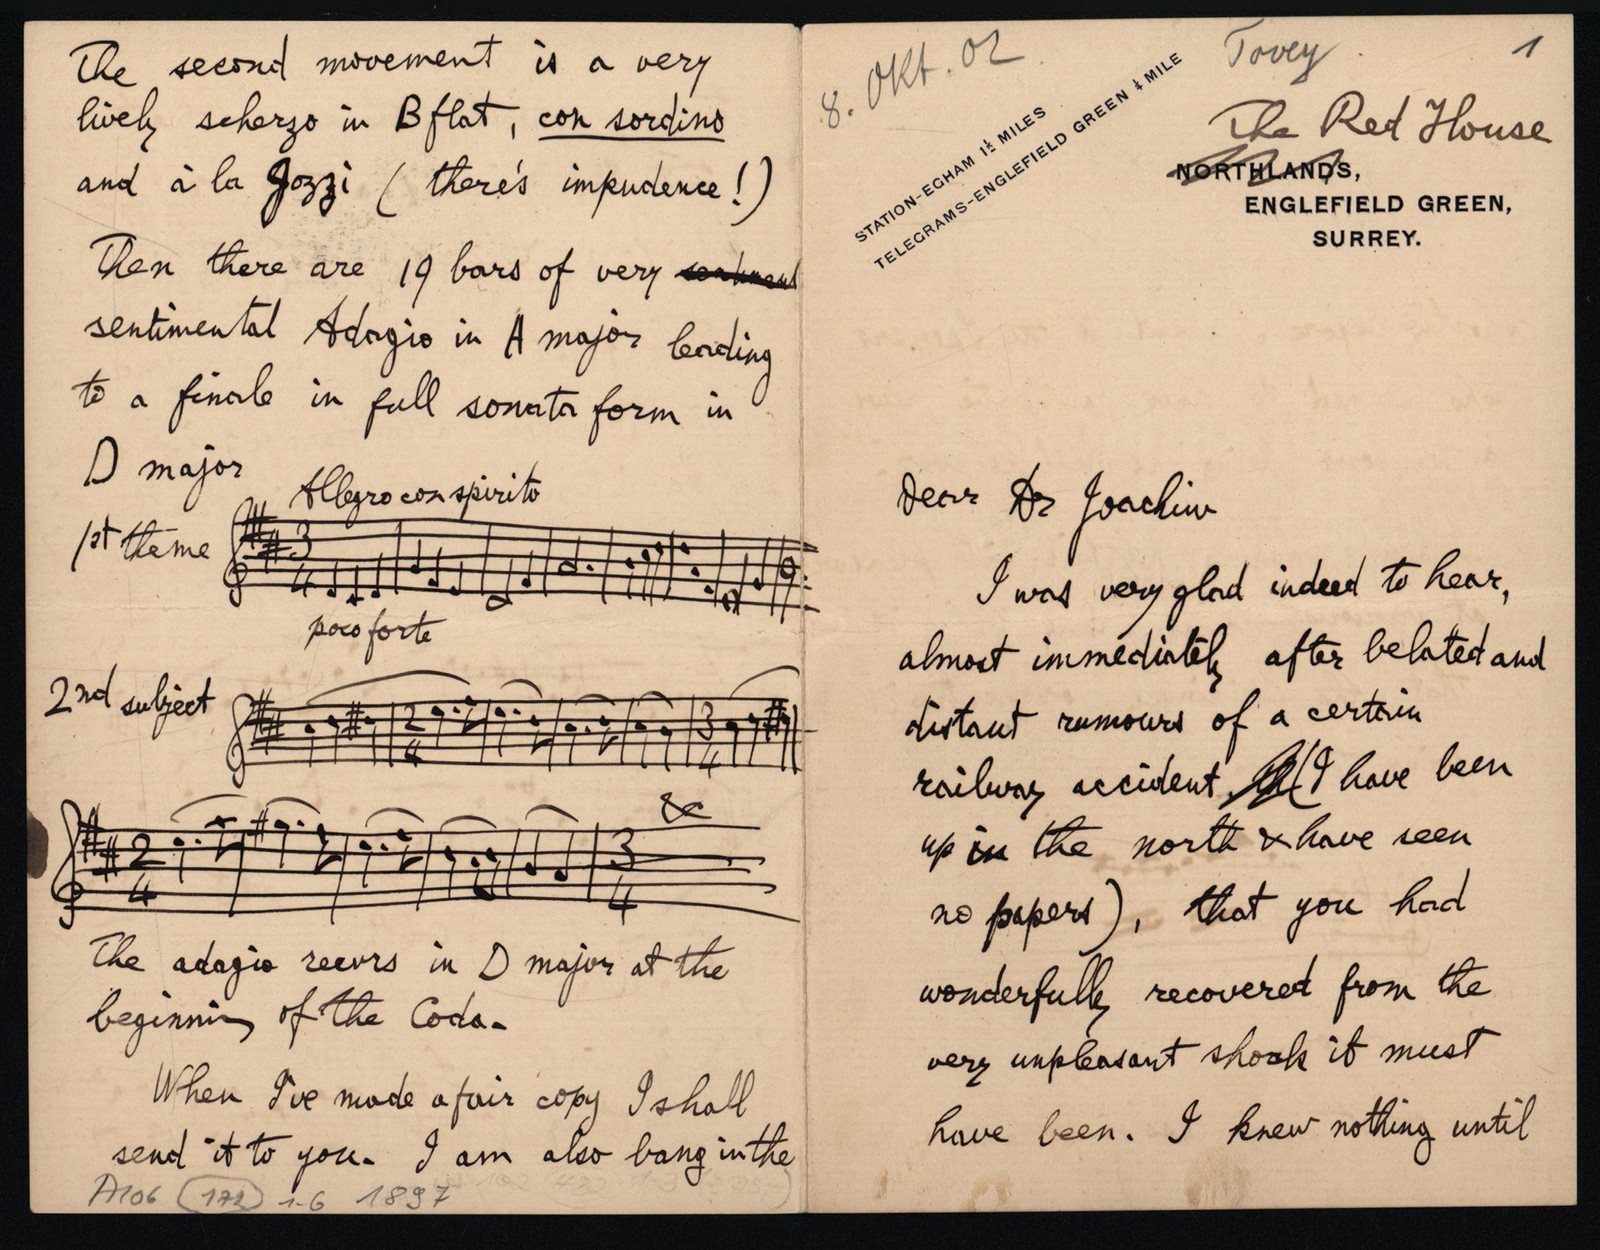 The second movement is a very
lively scherzo in B flat, con sordino
and à la Jozzi (there's impudence!)
Then there are 19 bars of very
sentimental Adagio in A major leading
to a finale in full sonata form in
D major
Allegro con spirito
1st theme
3
4
poco forte
2nd subject
2
4
3
4
2
4
3
4
&c
The adagio recurs in D major at the
beginning of the Coda.
When I've made a fair copy I shall
send it to you. I am also bang in the
A106 (172) 1-6 1897
8. Okt. 02
Tovey
1
STATION-EGHAM 1½ MILES
TELEGRAMS-ENGLEFIELD GREEN ¼ MILE
The Red House
NORTHLANDS,
ENGLEFIELD GREEN,
SURREY.
Dear Dr Joachim
I was very glad indeed to hear,
almost immediately after belated and
distant rumours of a certain
railway accident (I have been
up in the north & have seen
no papers), that you had
wonderfully recovered from the
very unpleasant shock it must
have been. I knew nothing until